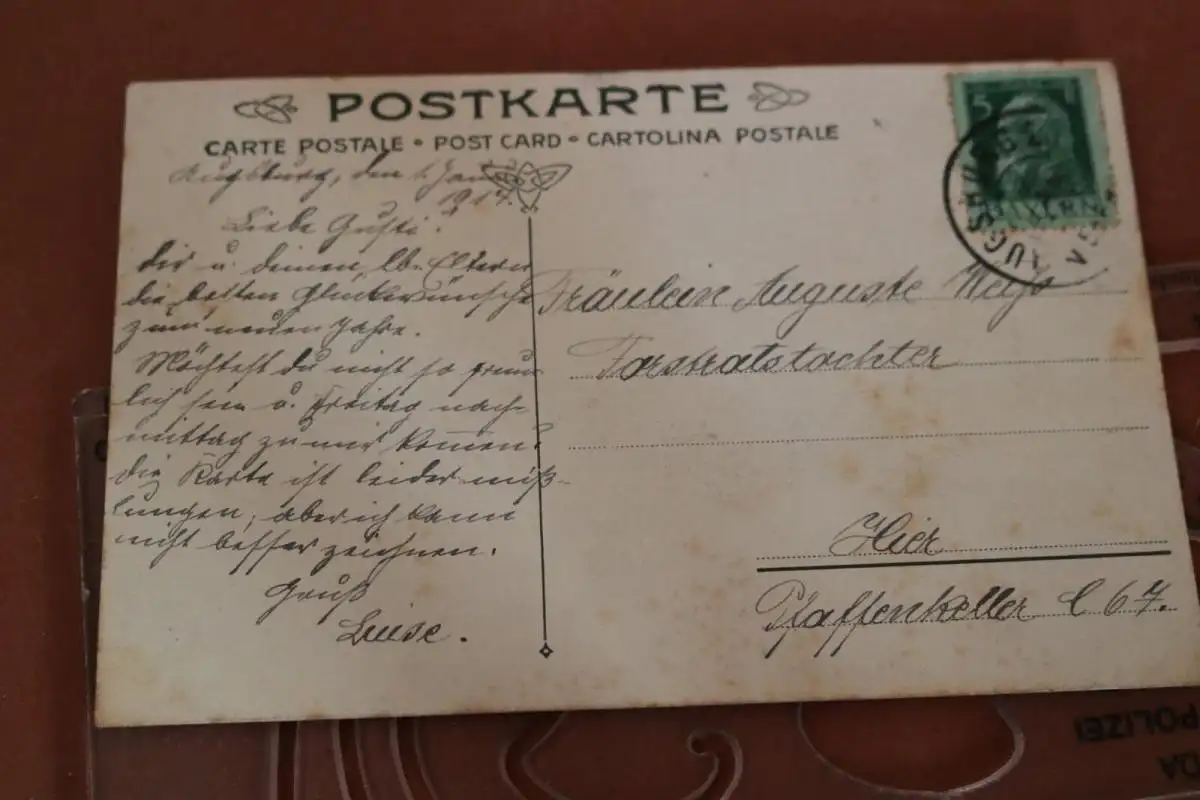 POSTKARTE
CARTE POSTALE • POST CARD • CARTOLINA POSTALE
Augsburg, den 1. Jan.
1914.
Liebe Gusti!
Dir u. deinen lb. Eltern
die besten Glückwünsche
zum neuen Jahre.
Möchtest du nicht so freund
lich sein u. Freitag nach-
mittag zu mir kommen?
Die Karte ist leider miß-
lungen, aber ich kann
nicht besser zeichnen.
Gruß
Luise.
5
BAYERN
AUGSBURG
Fräulein Auguste
Forstratstochter
Hier
Pfaffenkeller C 67.
POLIZEI